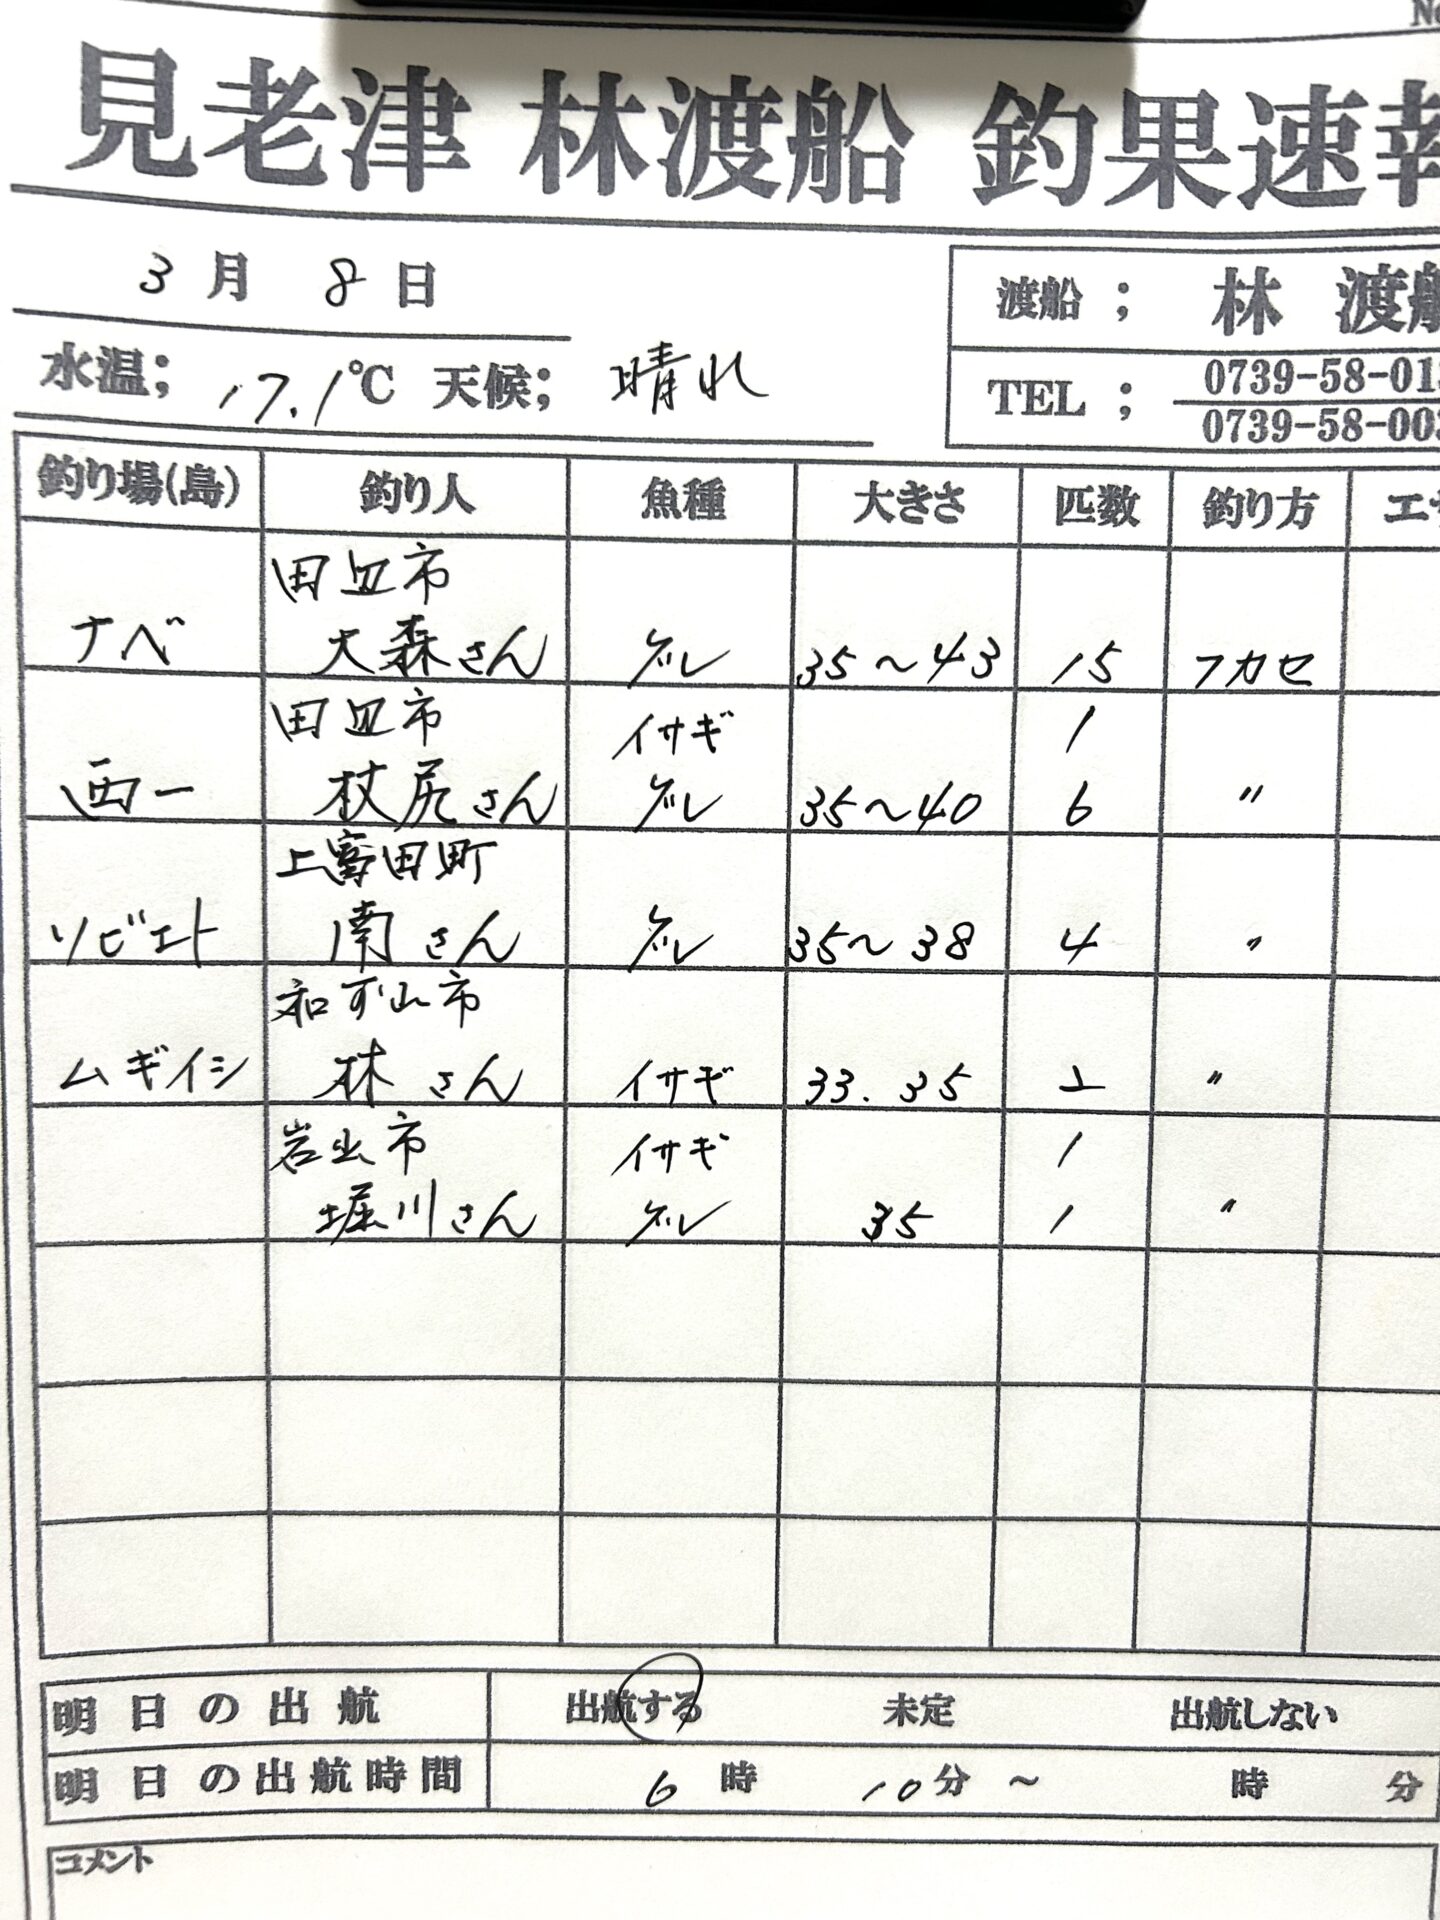 No
見老津 林渡船 釣果速報
3月 8日
渡船 ; 林 渡船
水温; 17.1℃ 天候; 晴れ
TEL ; 0739-58-01
0739-58-00
釣り場(島) 釣り人 魚種 大きさ 匹数 釣り方 エサ
田辺市
ナベ 大森さん グレ 35〜43 15 フカセ
田辺市 イサギ 1
西一 杖尻さん グレ 35〜40 6 〃
上富田町
ソビエト 南さん グレ 35〜38 4 〃
和歌山市
ムギイシ 林さん イサギ 33.35 2 〃
岩出市 イサギ 1
堀川さん グレ 35 1 〃
明日の出航 出航する 未定 出航しない
明日の出航時間 6時 10分 〜 時 分
コメント